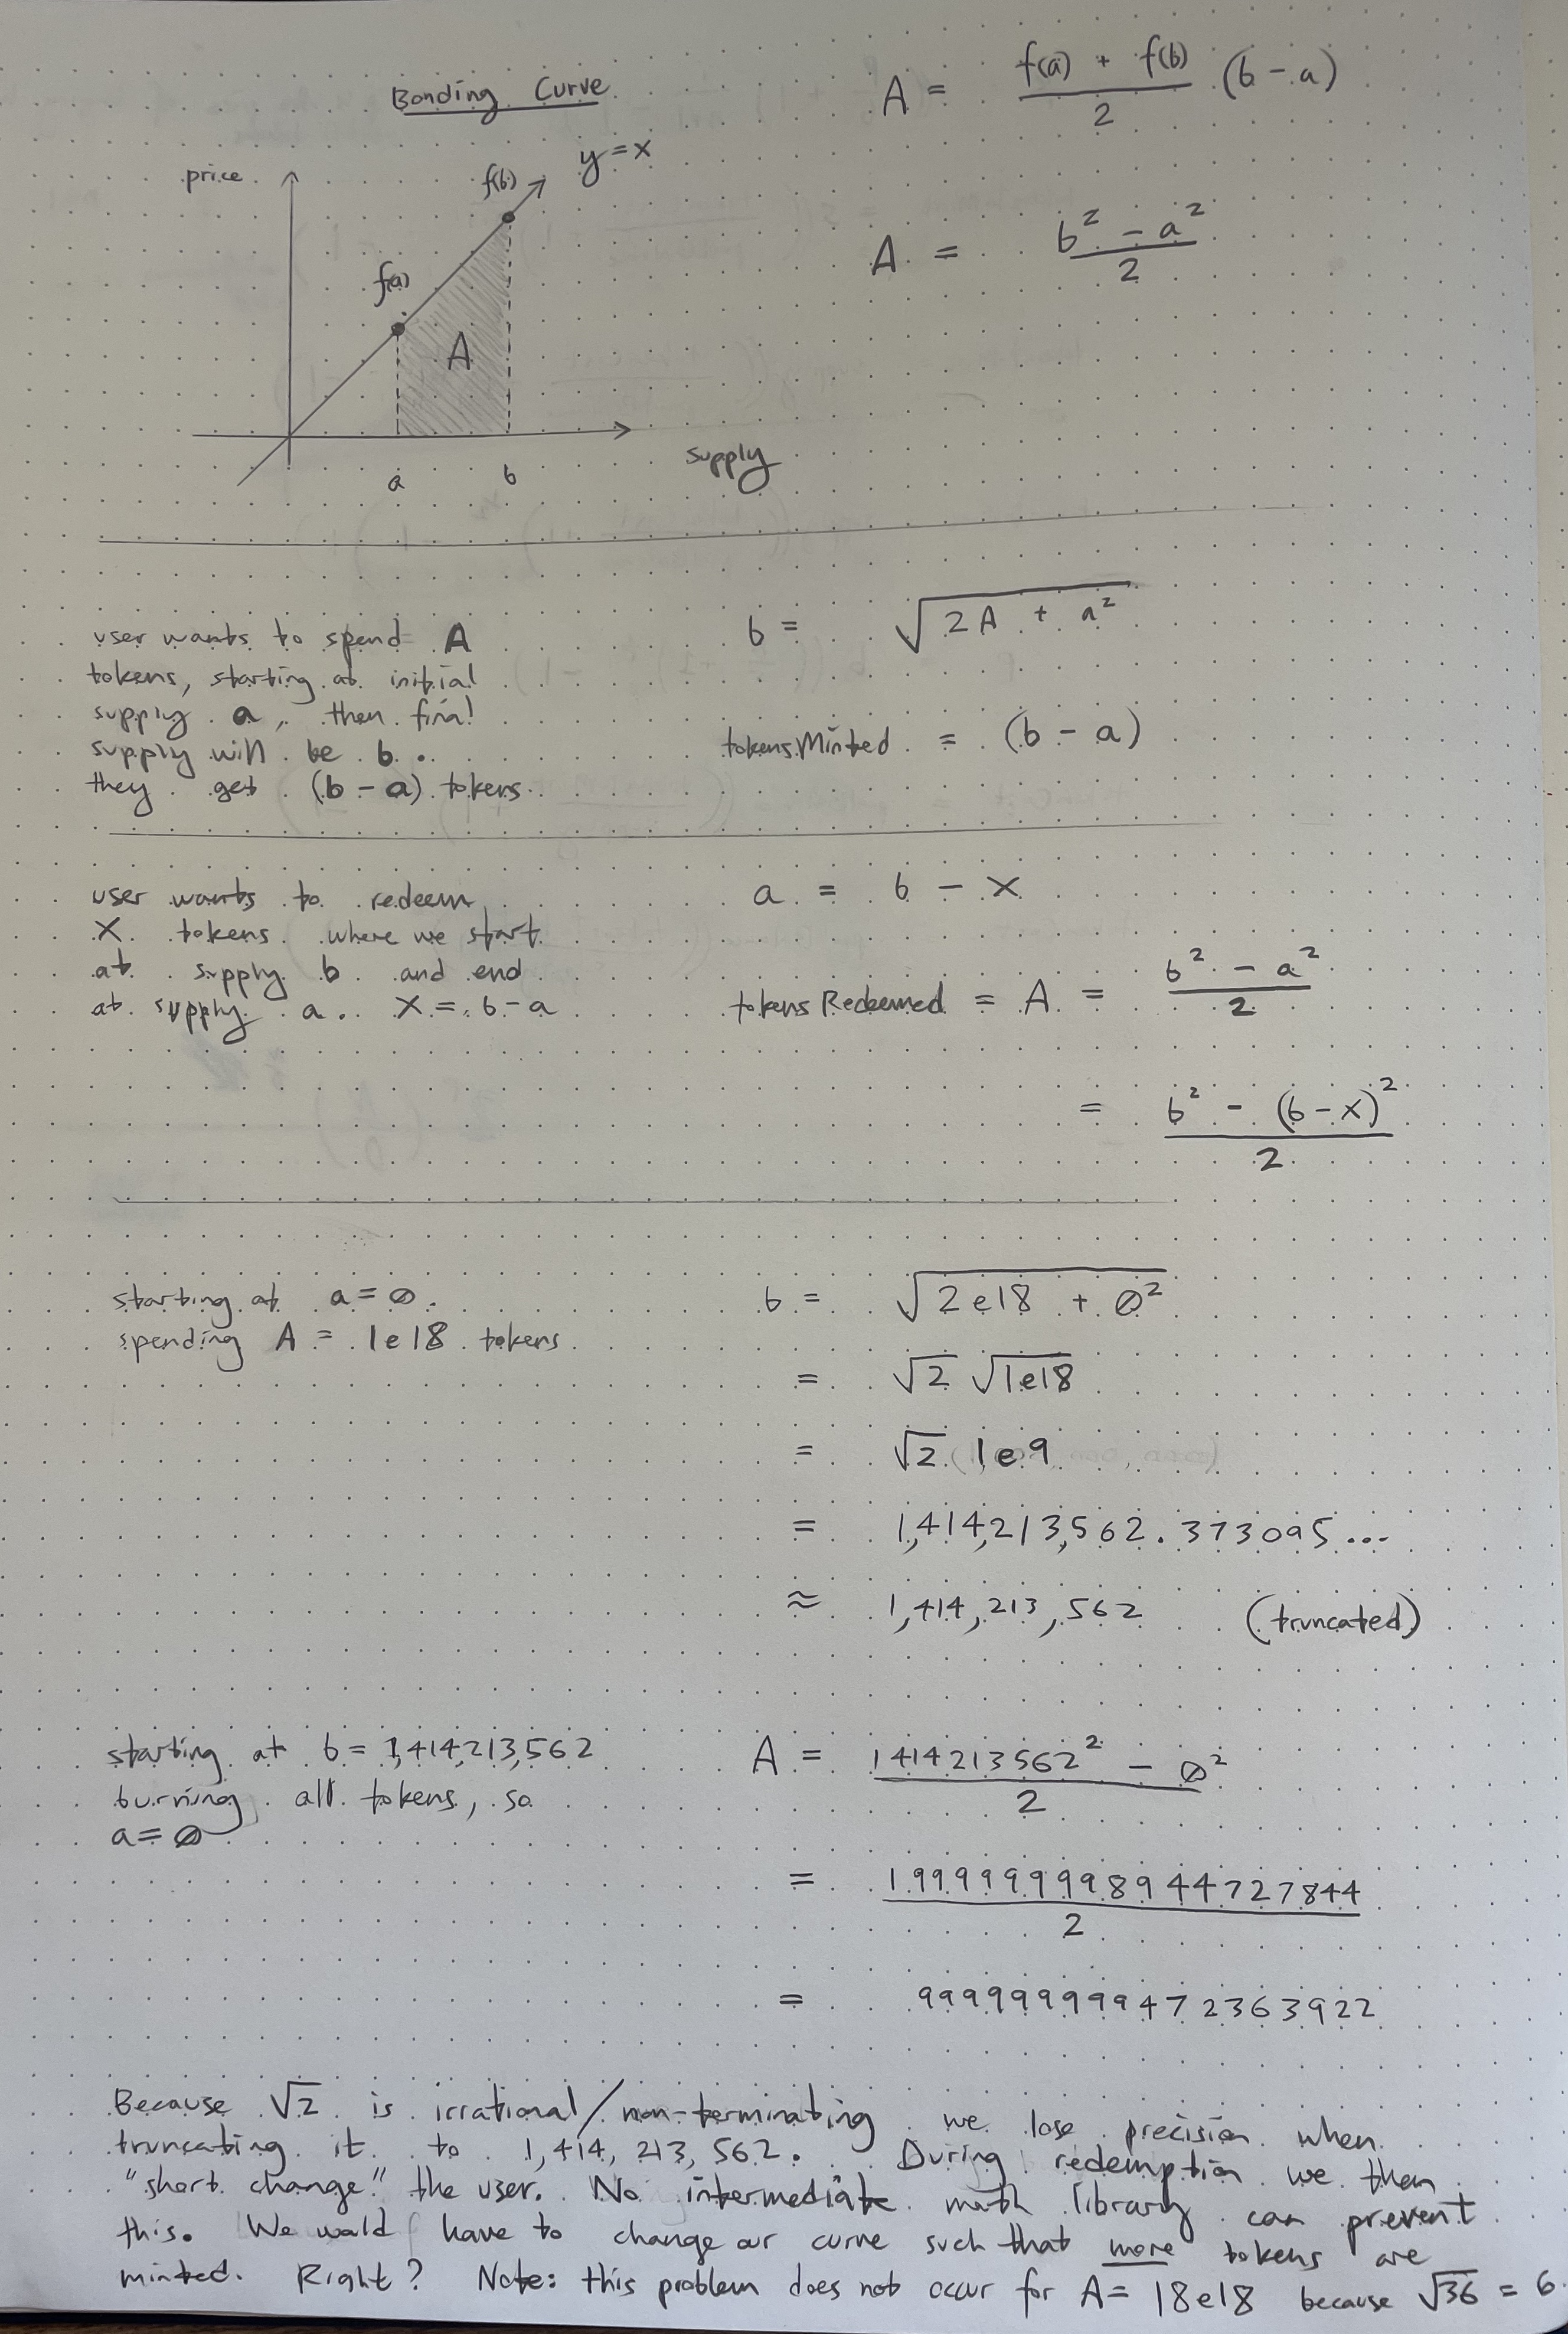 Bonding Curve
A = f(a) + f(b) / 2 (b - a)
price
f(b)
y=x
A = b² - a² / 2
f(a)
A
a
b
supply
user wants to spend A
tokens, starting at initial
supply a, then final
supply will be b.
they get (b - a) tokens
b = √(2A + a²)
tokensMinted = (b - a)
user wants to redeem
X tokens where we start
at supply b and end
at supply a. X = b-a
a = b - X
tokensRedeemed = A = b² - a² / 2
= b² - (b - X)² / 2
starting at a=0.
spending A = 1e18 tokens
b = √(2e18 + 0²)
= √2 √1e18
= √2 1e9
= 1,414,213,562.373095...
≈ 1,414,213,562 (truncated)
starting at b = 1,414,213,562
burning all tokens, so
a=0
A = 1414213562² - 0² / 2
= 1999999998944727844 / 2
= 999999999472363922
Because √2 is irrational/non-terminating we lose precision when
truncating it to 1,414,213,562. During redemption we then
"short change" the user. No intermediate math library can prevent
this. We would have to change our curve such that more tokens are
minted. Right? Note: this problem does not occur for A= 18e18 because √36 = 6.